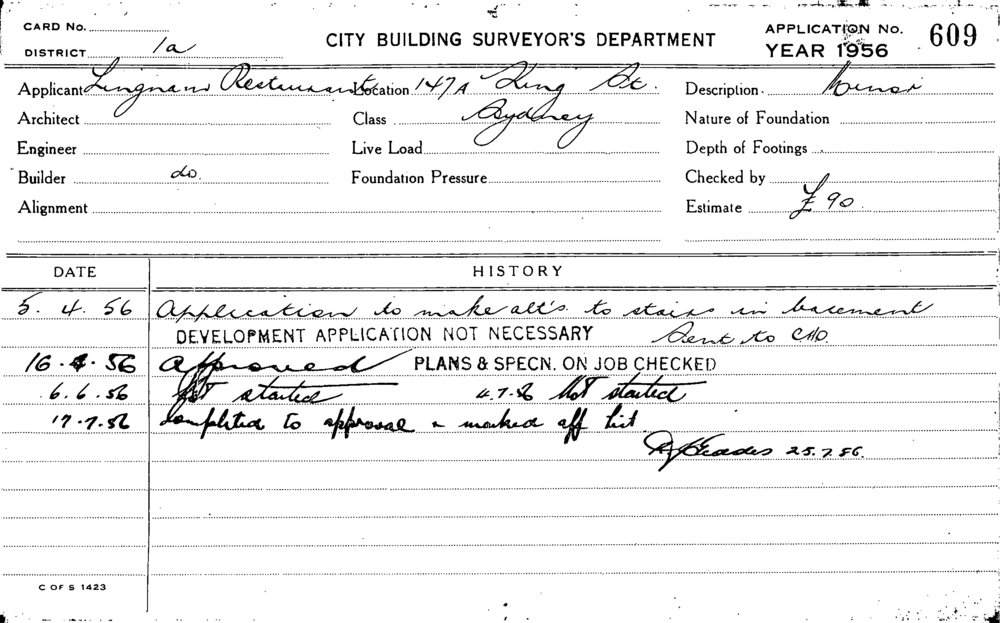 CARD No.
DISTRICT 1a
CITY BUILDING SURVEYOR'S DEPARTMENT
APPLICATION No. 609
YEAR 1956
Applicant Lingnam Restaurant Location 147A King St. Description Minor
Architect Class Sydney Nature of Foundation
Engineer Live Load Depth of Footings
Builder do. Foundation Pressure Checked by
Alignment Estimate £90
DATE HISTORY
5. 4. 56 Application to make alt's to stairs in basement
DEVELOPMENT APPLICATION NOT NECESSARY Sent to CHO.
16.4.56 Approved PLANS & SPECN. ON JOB CHECKED
6.6.56 Not started 4.7.56 Not started
17.7.56 Completed to approval & marked off list
25.7.56.
C OF S 1423